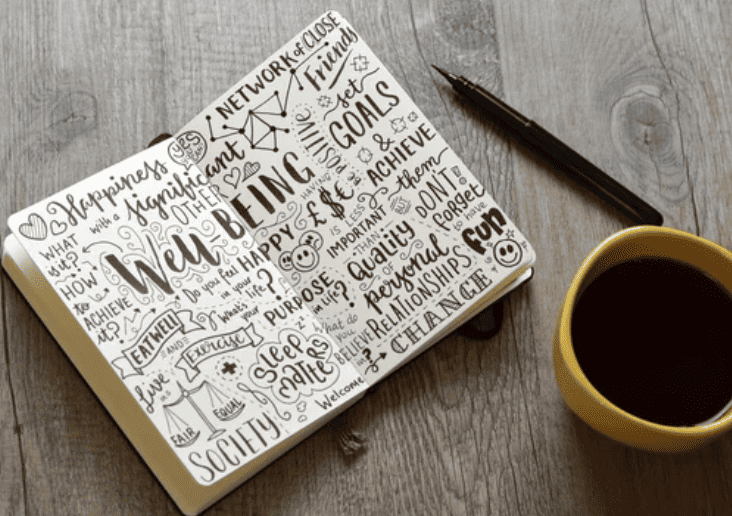 Happiness
with a significant
OTHER
WHAT
is it?
HOW
to
ACHIEVE
it?
Well-BEING
Do you feel HAPPY
in your
life?
What's
your
PURPOSE
in life?
EAT WELL
AND
Exercise
Sleep
matters
z z
Live in
FAIR
EQUAL
SOCIETY!
yes
NETWORK of CLOSE
Friends
set
GOALS
&
ACHIEVE
them
POSITIVE
HAVING
£$€
IS LESS
IMPORTANT
THAN
Quality
of
personal
RELATIONSHIPS
BUT
DON'T!
forget
to have
fun
What do
you
BELIEVE
in?
Welcome
CHANGE